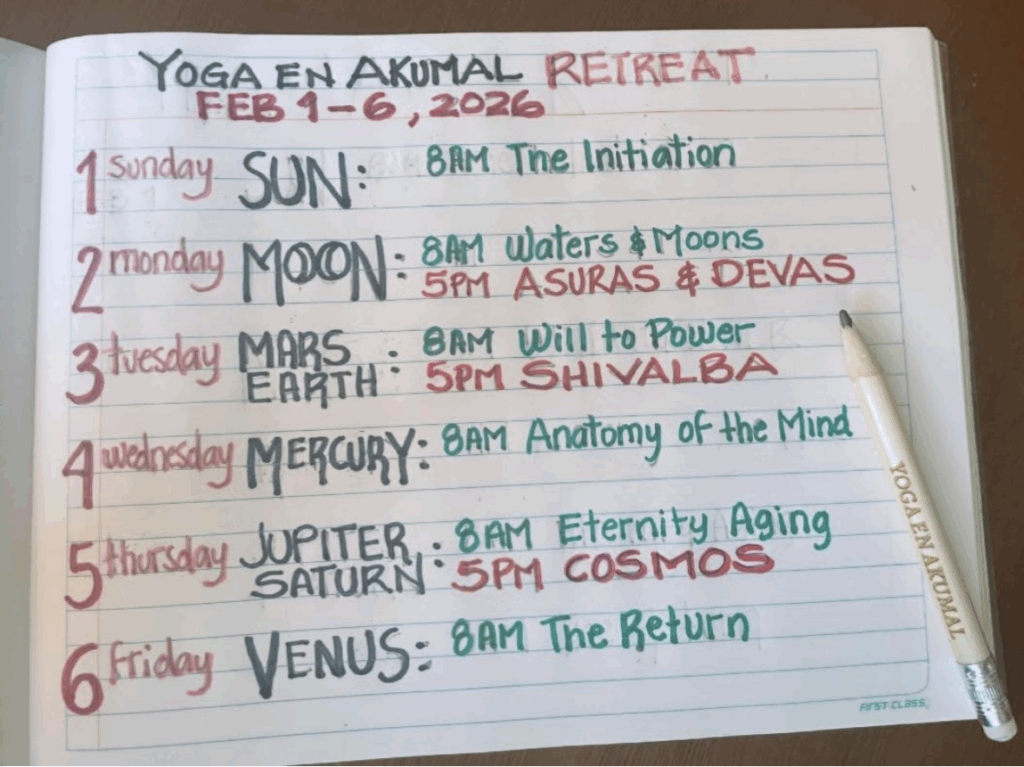 YOGA EN AKUMAL RETREAT
FEB 1-6, 2026
1 sunday SUN: 8AM The Initiation
2 monday MOON: 8AM Waters & Moons
5PM ASURAS & DEVAS
3 tuesday MARS EARTH: 8AM Will to Power
5PM SHIVALBA
4 wednesday MERCURY: 8AM Anatomy of the Mind
5 thursday JUPITER, SATURN: 8AM Eternity Aging
5PM COSMOS
6 friday VENUS: 8AM The Return
YOGA EN AKUMAL
FIRST CLASS